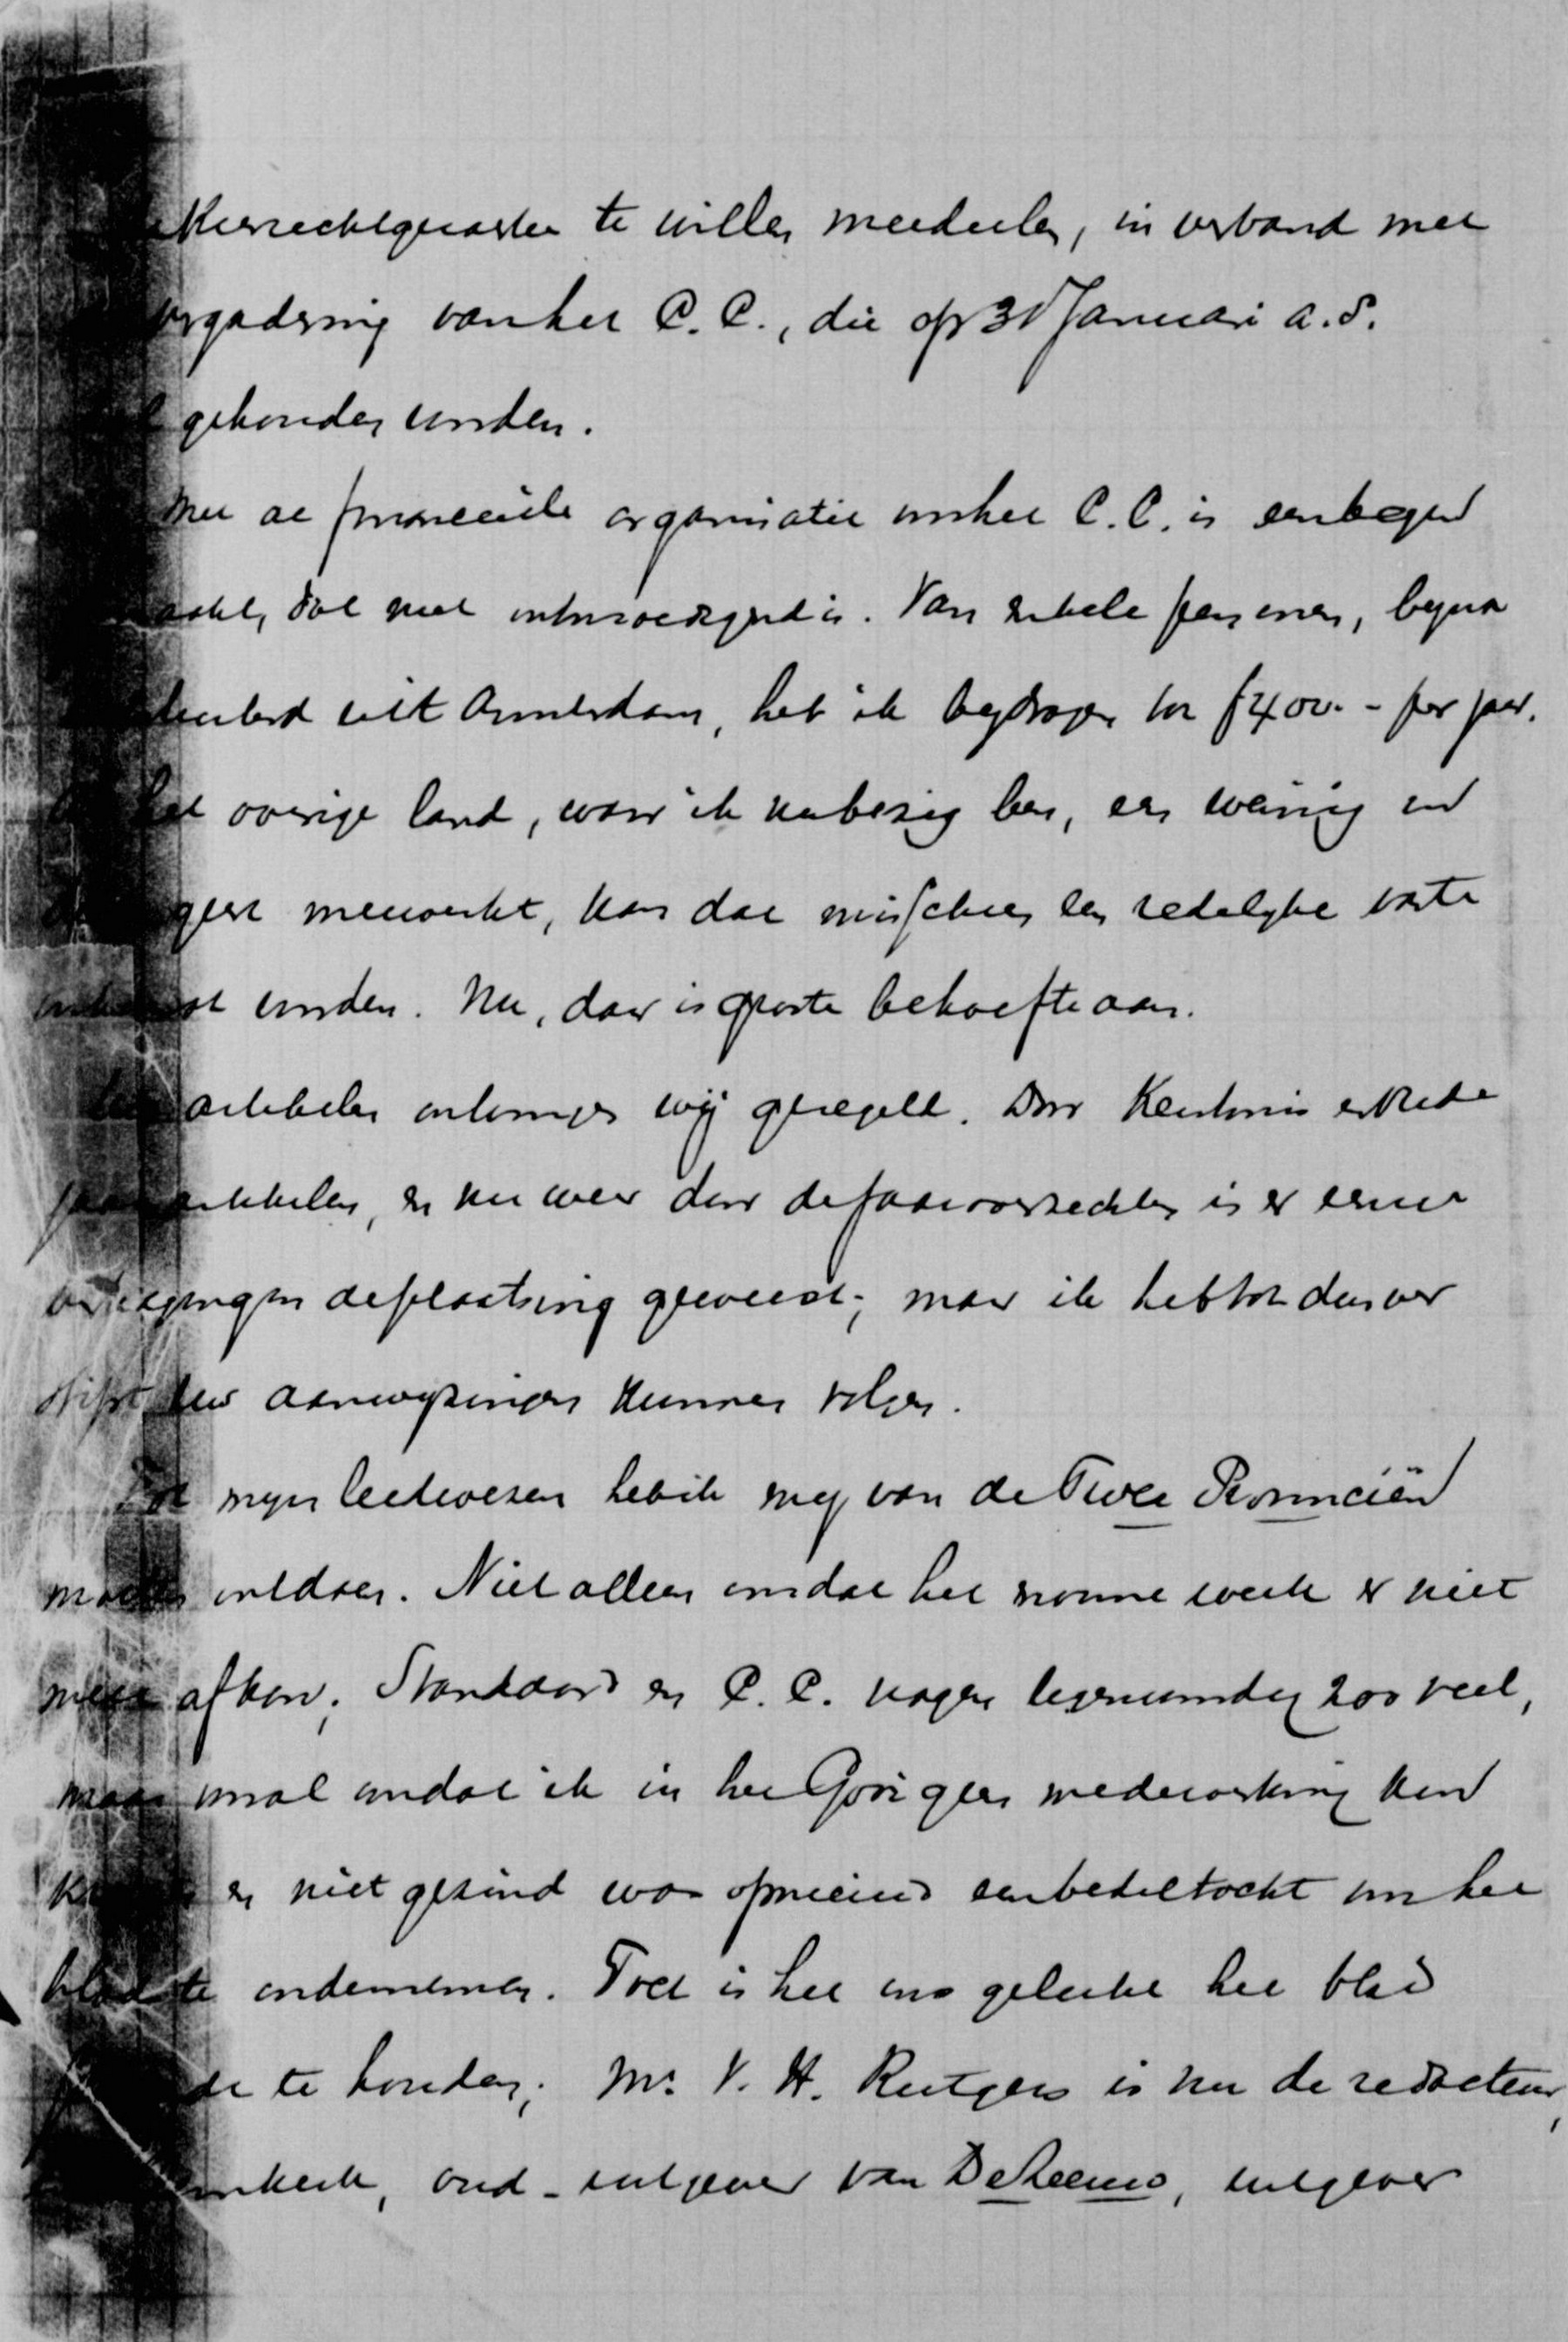 Kiesrechtquaestie te willen meedeelen, in verband met
vergadering van het C.C., die op 31 Januari a.s.
gehouden worden.
Met de financieele organisatie van het C.C. is een begin
maakt, dat niet onbevredigend is. Van enkele personen, bijna
uit Amsterdam, heb ik bijdragen tot f 400.- per jaar.
het overige land, waar ik nu bezig ben, een weinig
meewerkt, kan dat misschien een redelijke vaste
worden. Nu, daar is groote behoefte aan.
artikelen ontvingen wij geregeld. Door Kerstmis
artikelen, en nu weer door de jaaroverzichten is er eenige
vertraging in de plaatsing geweest; maar ik heb tot dusver
stipt Uw aanwijzingen kunnen volgen.
Tot mijn leedwezen heb ik mij van de Twee Provinciën
moeten ontdoen. Niet alleen omdat het mooie werk er niet
meer af kon; Standaard en C.C. vragen tegenwoordig zoo veel,
maar vooral omdat ik in het Gooi geen medewerking kon
en niet gezind was opnieuw een bedeltocht om het
blad te ondernemen. Toch is het ons gelukt het blad
te houden; Mr. V. H. Rutgers is nu de redacteur,
oud-uitgever van De Leeuw, uitgever